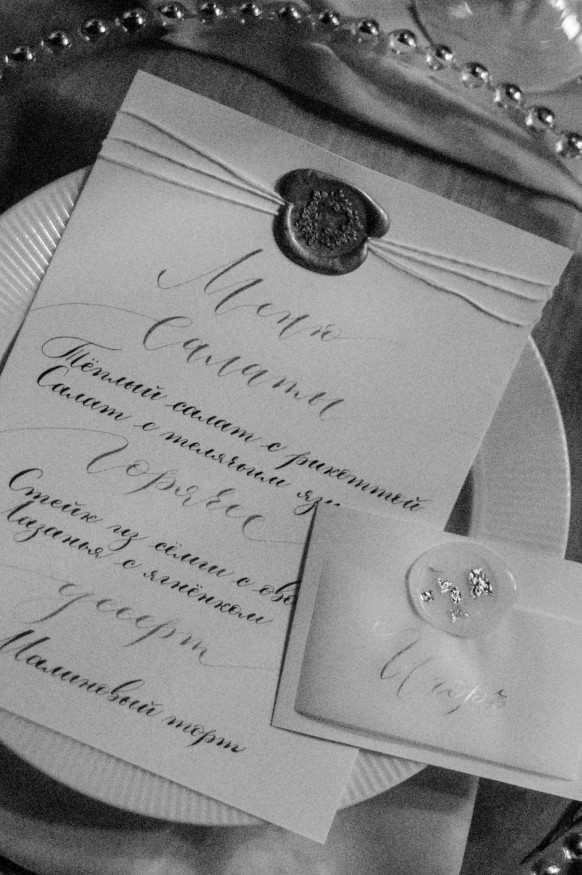 Меню
Салаты
Тёплый салат с рикоттой
Салат с телячьим
Горячее
Стейк из сёмги с
Лазанья с ягнёнком
десерт
Малиновый торт
Игорь